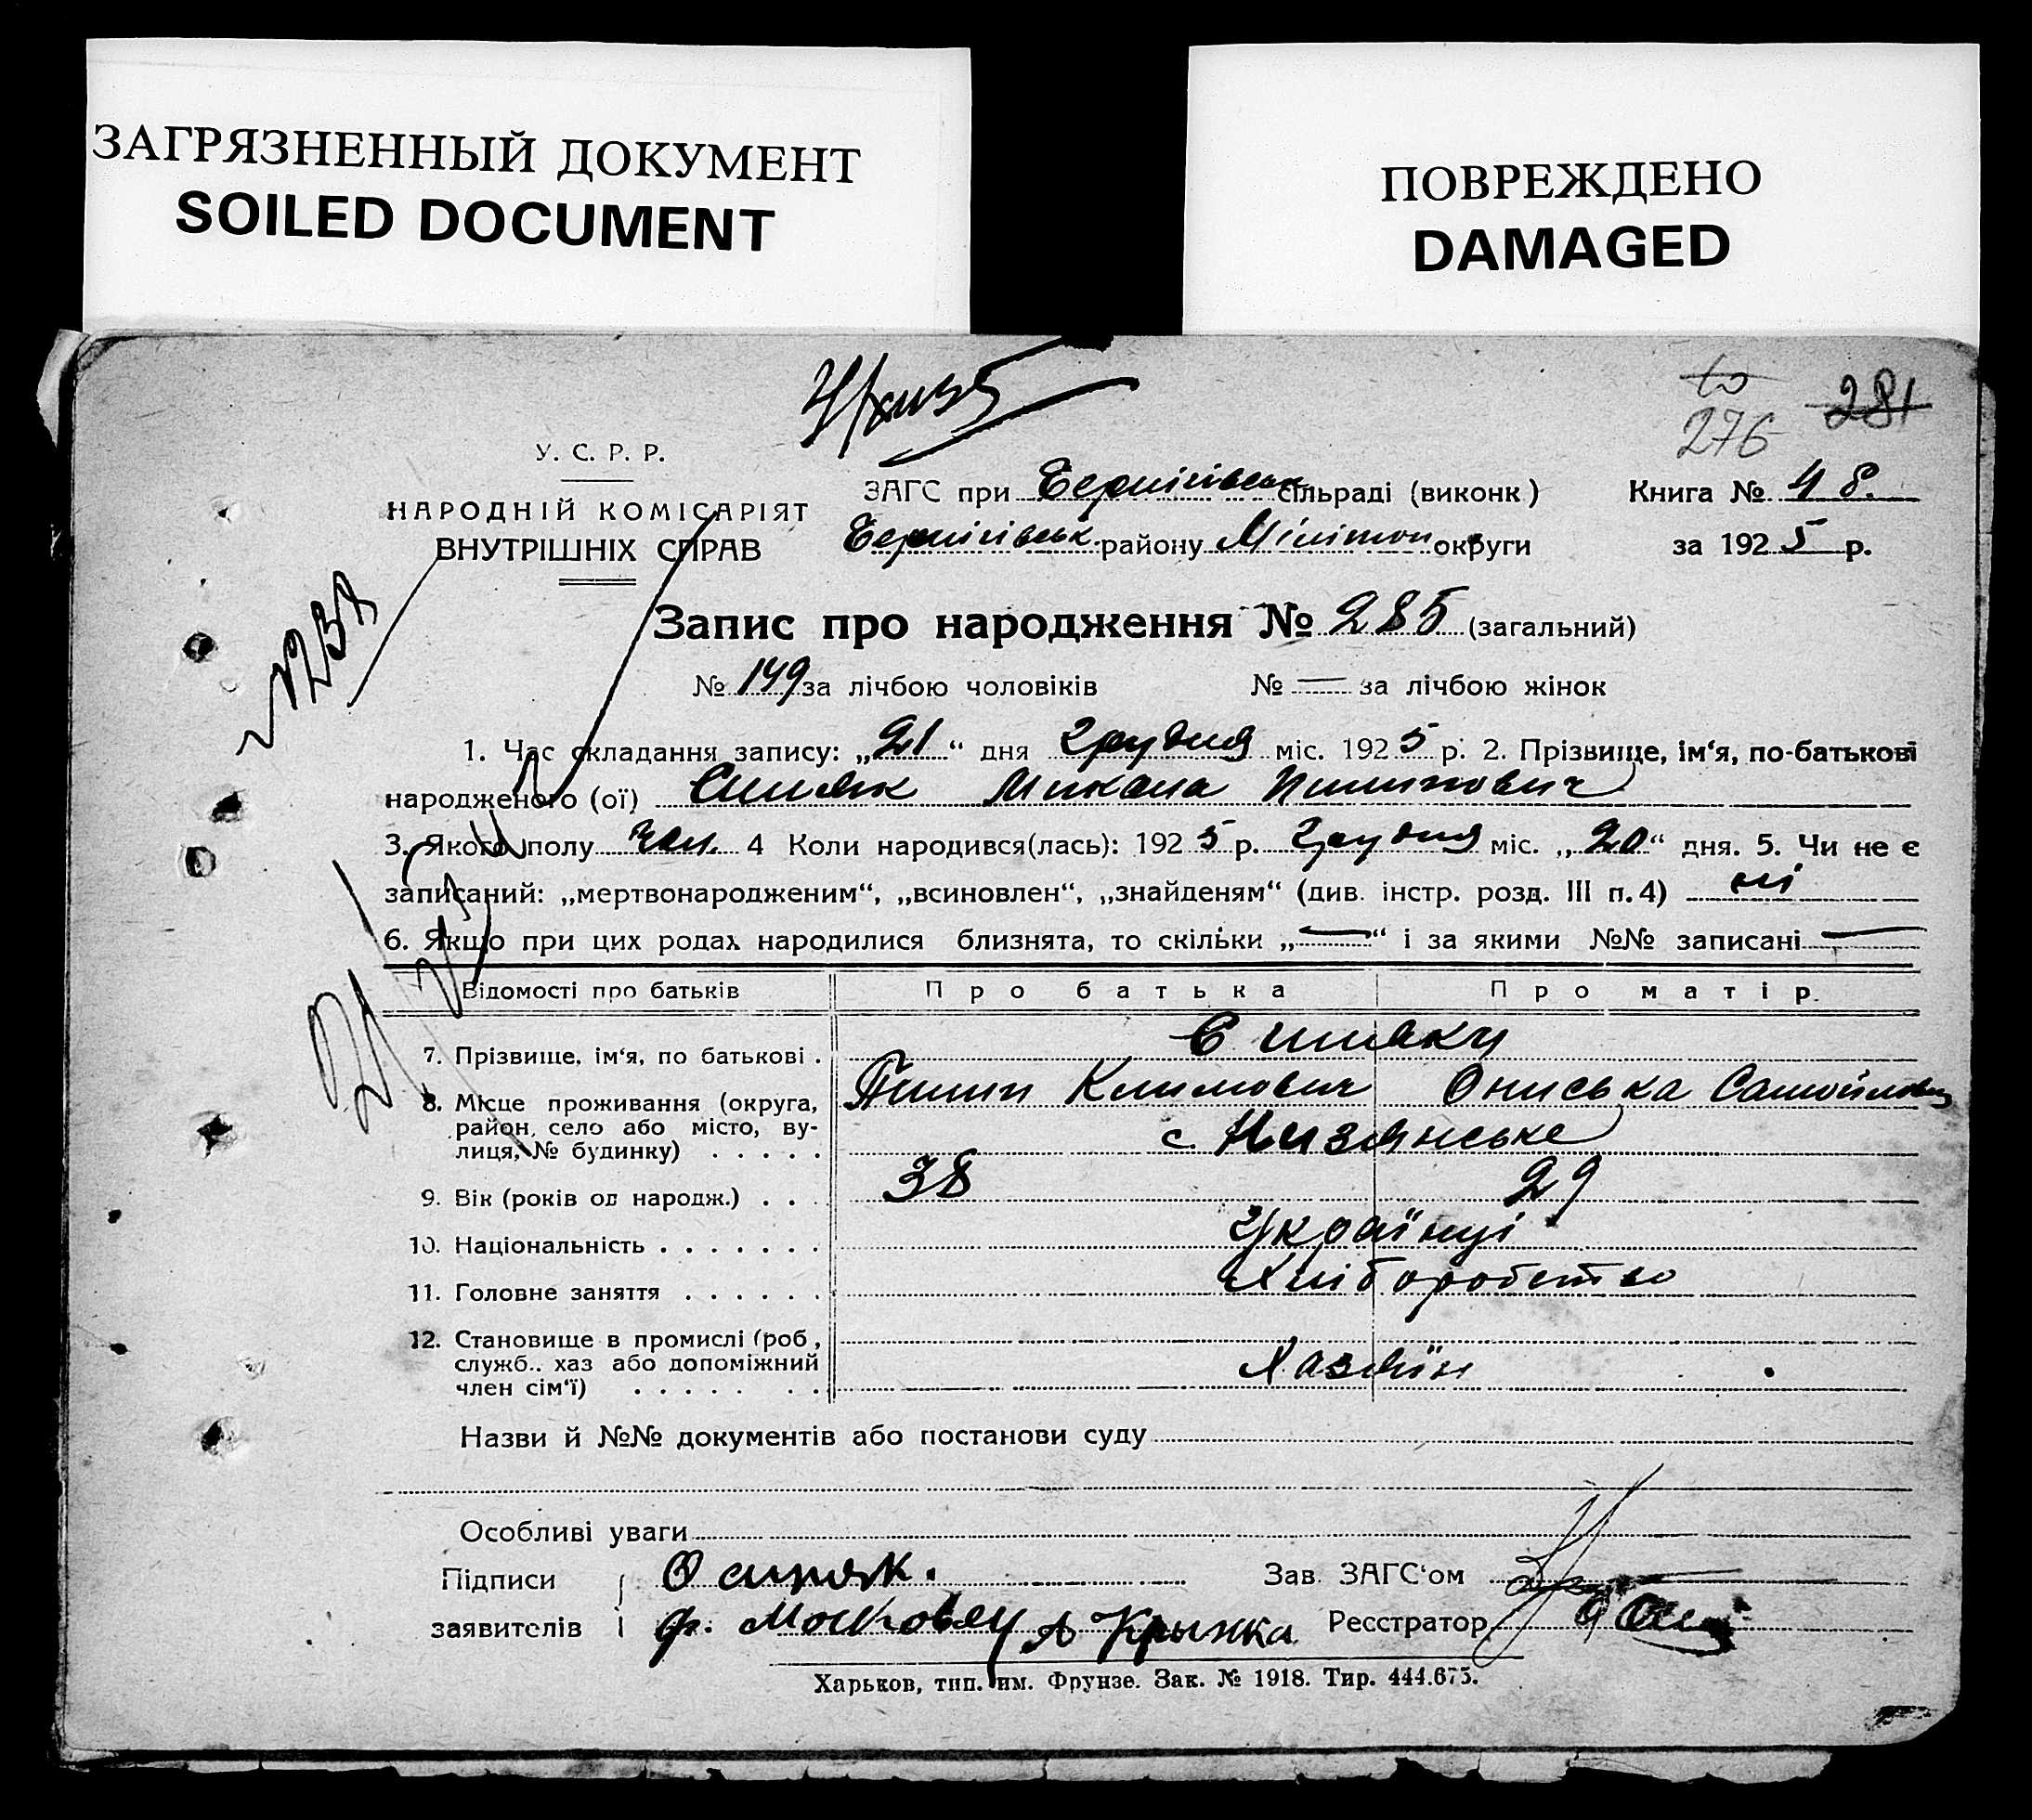 ЗАГРЯЗНЕННЫЙ ДОКУМЕНТ
SOILED DOCUMENT
ПОВРЕЖДЕНО
DAMAGED
276 281
У. С. Р. Р.
НАРОДНІЙ КОМІСАРІЯТ
ВНУТРІШНІХ СПРАВ
ЗАГС при сільраді (виконк) Книга № 48.
району округи за 1925 р.
Запис про народження № 285 (загальний)
№ 149 за лічбою чоловіків № — за лічбою жінок
1. Час складання запису: „21“ дня Грудня міс. 1925 р. 2. Прізвище, ім‘я, по-батькові
народженого (ої) Микола Пилипович
3. Якого полу чол. 4 Коли народився(лась): 1925 р. Грудня міс. „20“ дня. 5. Чи не є
записаний: „мертвонародженим“, „всиновлен“, „знайденям“ (див. інстр. розд. III п. 4) ні
6. Якщо при цих родах народилися близнята, то скільки „—“ і за якими №№ записані —
Відомості про батьків Про батька Про матір.
7. Прізвище, ім‘я, по батькові .
Пилип Климович Ониська Самойловн
8. Місце проживання (округа, район, село або місто, ву-
лиця, № будинку) . . . . . с. Низянське
9. Вік (років од народж.) . . . 38 29
10. Національність . . . . . . . Українці
11. Головне заняття . . . . . . Хліборобство
12. Становище в промислі (роб,
служб.. хаз або допоміжний
член сім‘ї) . . . . . . . Хазяїн
Назви й №№ документів або постанови суду
Особливі уваги
Підписи Зав. ЗАГС‘ом
заявителів А Крыжка Реєстратор
Харьков, тип. им. Фрунзе. Зак. № 1918. Тир. 444.675.